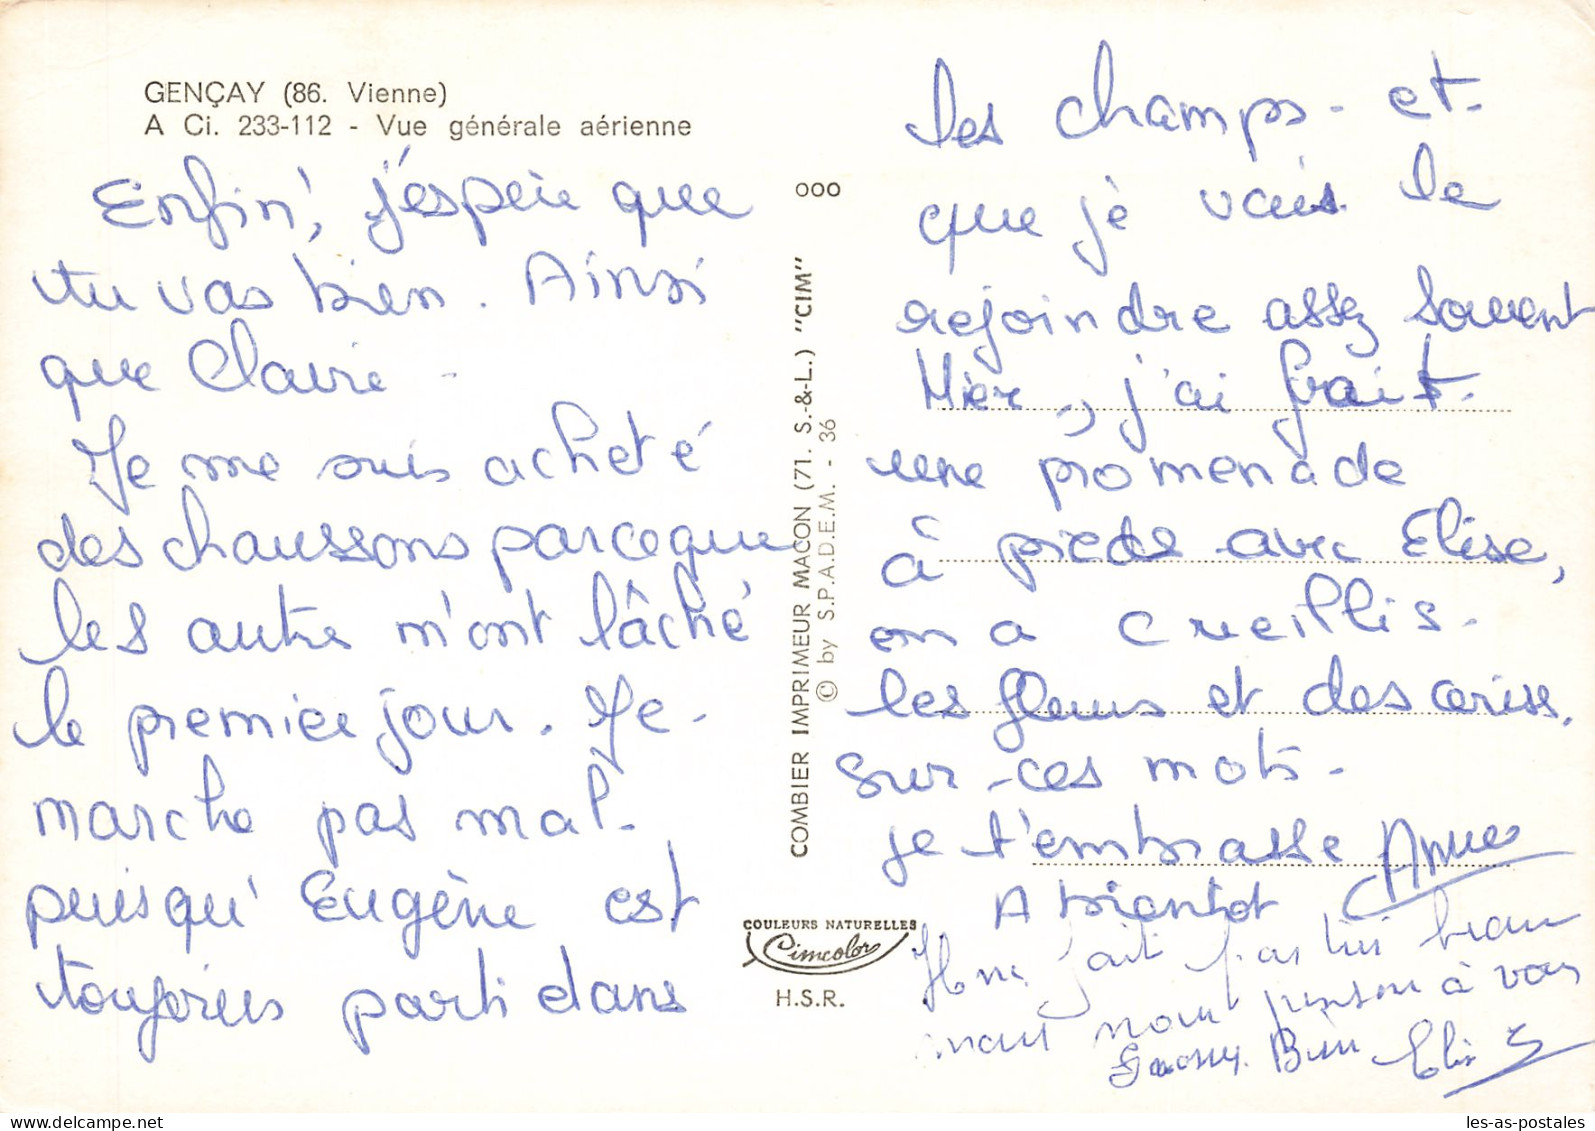 GENÇAY (86. Vienne)
A Ci. 233-112 - Vue générale aérienne
Enfin, j'espère que
tu vas bien. Ainsi
que Claire -
Je me suis acheté
des chaussons parceque
les autre m'ont lâché
le premier jour. Je -
marche pas mal -
puisqu' Eugène est
toujours parti dans
COMBIER IMPRIMEUR MACON (71. S.-&-L.) "CIM"
© by S.P.A.D.E.M. - 36
ooo
COULEURS NATURELLES
Cimcolor
H.S.R.
les champs - et -
que je vais le
rejoindre assez souvent
Hier, j'ai frait -
une promenade
à pieds avec Elise,
on a creillis -
les fleurs et des ceriss.
Sur - ces mots -
je t'embrasse Anne
A bientot
Il ne fait pas très beau
mais nous pensons à vous
Grosses Bises Elise
les-as-postales